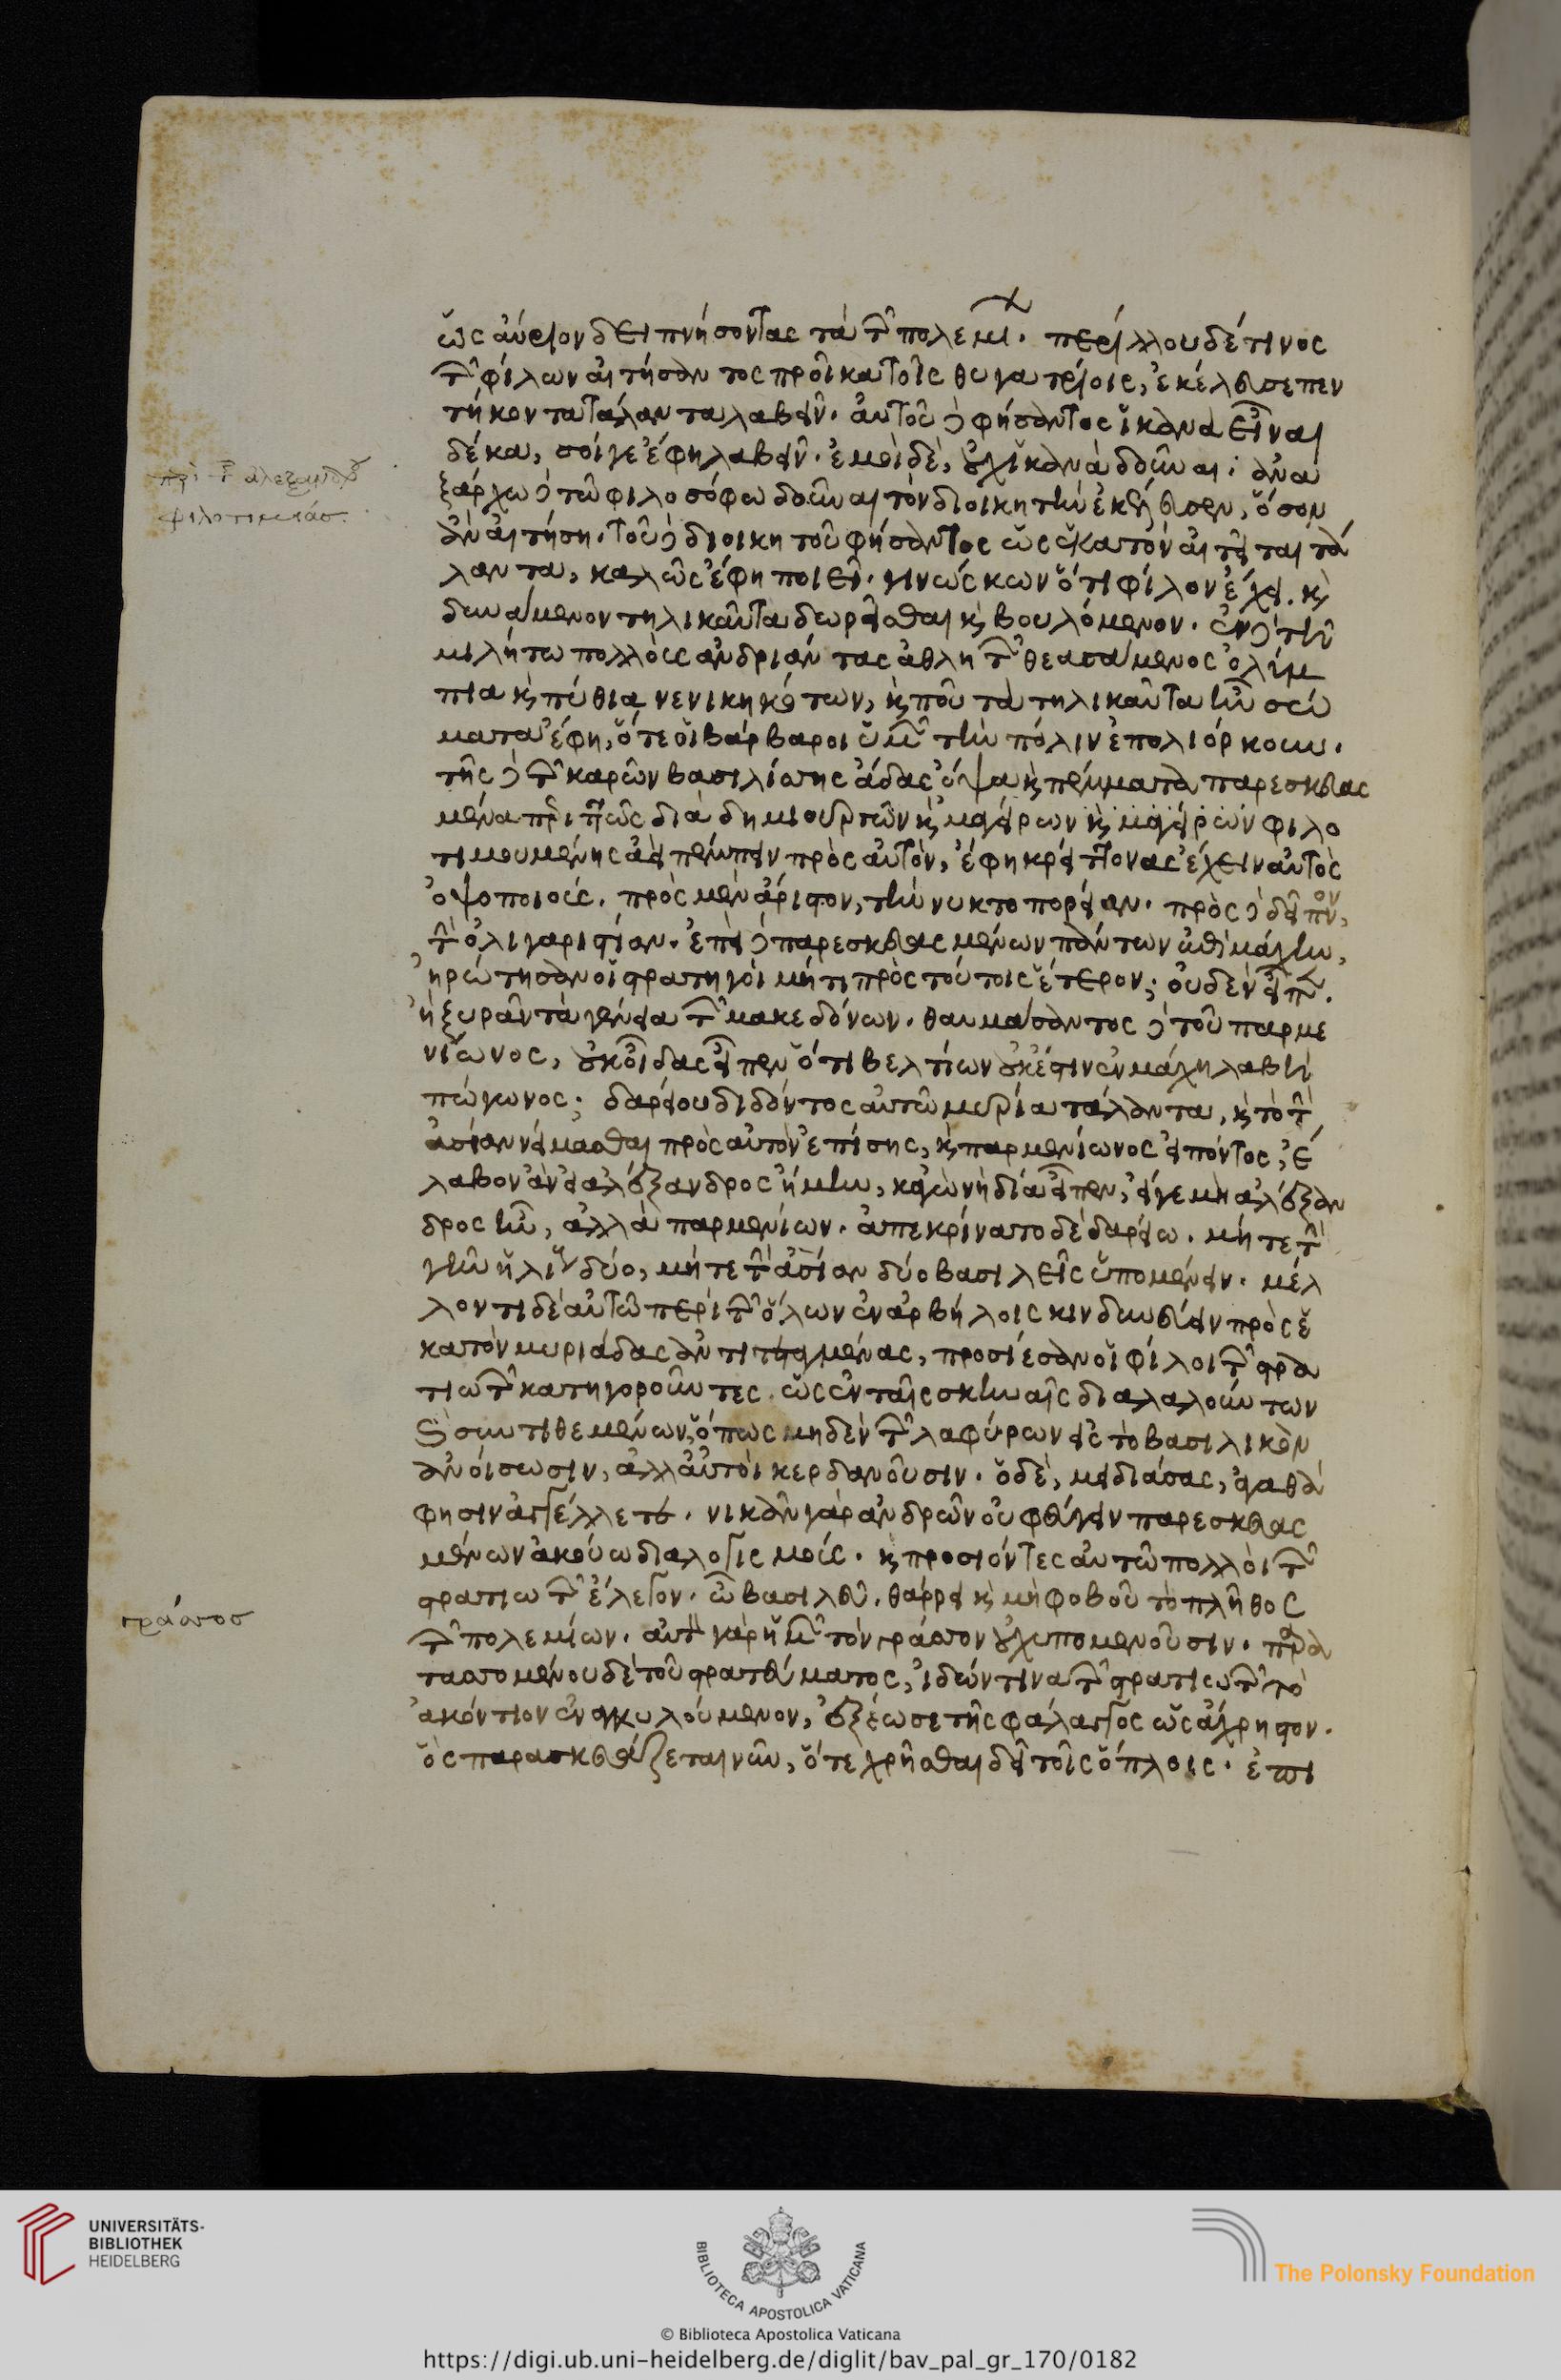 ὡς αὔριον δειπνήσοντας τὰ τῶν πολεμίων. περίλλου δέ τινος
τῶν φίλων αἰτήσαντος προῖκα τοῖς θυγατρίοις, ἐκέλευσε πεν
τήκοντα τάλαντα λαβεῖν. αὐτοῦ δὲ φήσαντος ἱκανὰ εἶναι
δέκα, σοί γε ἔφη λαβεῖν. ἐμοὶ δὲ, οὐχ ἱκανὰ δοῦναι. ἀνα
ξάρχω δὲ τῶ φιλοσόφω δοῦναι τὸν διοικητὴν ἐκέλευσεν, ὅσον
ἂν αἰτήση. τοῦ δὲ διοικητοῦ φήσαντος ὡς ἑκατὸν αἰτεῖται τά
λαντα, καλῶς ἔφη ποιεῖ. γινώσκων ὅτι φίλον ἔχει. καὶ
δυνάμενον τηλικαῦτα δωρεῖσθαι καὶ βουλόμενον. ἐν δὲ τῆ
μιλήτω πολλοὺς ἀνδριάντας ἀθλητῶν θεασάμενος ὀλύμ
πια καὶ πύθια νενικηκότων, καὶ ποῦ τὰ τηλικαῦτα ἦν σώ
ματα ἔφη, ὅτε οἱ βάρβαροι ὑμῶν τὴν πόλιν ἐπολιόρκουν.
τῆς δὲ τῶν καρῶν βασιλίσσης ἄδας ὄψα καὶ πέμματα παρεσκευας
μένα περιττῶς διὰ δημιουργῶν καὶ μαγείρων καὶ μαγείρων φιλο
τιμουμένης ἀεὶ πέμπειν πρὸς αὐτὸν, ἔφη κρείττονας ἔχειν αὐτὸς
ὀψοποιούς. πρὸς μὲν ἄριστον, τὴν νυκτοπορείαν. πρὸς δὲ δεῖπνον,
τὴν ὀλιγαριστίαν. ἐπεὶ δὲ παρεσκευασμένων πάντων εἰς μάχην,
ἠρώτησαν οἱ στρατηγοὶ μή τι πρὸς τούτοις ἕτερον; οὐδὲν εἶπεν.
ἢ ξυρᾶν τὰ γένεια τῶν μακεδόνων. θαυμάσαντος δὲ τοῦ παρμε
νίωνος, οὐκ οἶδας εἶπεν ὅτι βελτίων οὐκ ἔστιν ἐν μάχη λαβὴ
πώγωνος; δαρείου διδόντος αὐτῶ μυρία τάλαντα, καὶ τὸ τὴν
ἀσίαν νείμασθαι πρὸς αὐτὸν ἐπίσης, καὶ παρμενίωνος εἰπόντος, ἔ
λαβον ἂν εἰ ἀλέξανδρος ἤμην, κἀγὼ νὴ δία εἶπεν, εἴ γε μὴ ἀλέξαν
δρος ἦν, ἀλλὰ παρμενίων. ἀπεκρίνατο δὲ δαρείω. μήτε τὴν
γῆν ἡλίους δύο, μήτε τὴν ἀσίαν δύο βασιλεῖς ὑπομένειν. μέλ
λοντι δὲ αὐτῶ περὶ τῶν ὅλων ἐν ἀρβήλοις κινδυνεύειν πρὸς ἑ
κατὸν μυριάδας ἀντιτεταγμένας, προσιέσαν οἱ φίλοι τῶν στρα
τιωτῶν κατηγοροῦντες ὡς ἐν ταῖς σκηναῖς διαλαλούντων
καὶ συντιθεμένων, ὅπως μηδὲν τῶν λαφύρων εἰς τὸ βασιλικὸν
ἀνοίσωσιν, ἀλλ' αὐτοὶ κερδανοῦσιν. ὁ δὲ, μειδιάσας, ἀγαθά
φησιν ἀγγέλλετε. νικᾶν γὰρ ἀνδρῶν οὐ φεύγειν παρεσκευας
μένων ἀκούω διαλογισμούς. καὶ προσιόντες αὐτῶ πολλοὶ τῶν
στρατιωτῶν ἔλεγον. ὦ βασιλεῦ. θάρρει καὶ μὴ φοβοῦ τὸ πλῆθος
τῶν πολεμίων. αὐτὸν γὰρ ἡμῶν τὸν γράσσον οὐχ ὑπομενοῦσιν. παρα
τασσομένου δὲ τοῦ στρατεύματος, ἰδών τινα τῶν στρατιωτῶν τὸ
ἀκόντιον ἐναγκυλούμενον, ἐξέωσε τῆς φάλαγγος ὡς ἄχρηστον.
ὃς παρασκευάζεται νῦν, ὅτε χρῆσθαι δεῖ τοῖς ὅπλοις. ἐπι
περὶ τῆς ἀλεξάνδρου
φιλοτιμίας.
γράσσος
UNIVERSITÄTS-
BIBLIOTHEK
HEIDELBERG
BIBLIOTECA APOSTOLICA VATICANA
The Polonsky Foundation
© Biblioteca Apostolica Vaticana
https://digi.ub.uni-heidelberg.de/diglit/bav_pal_gr_170/0182